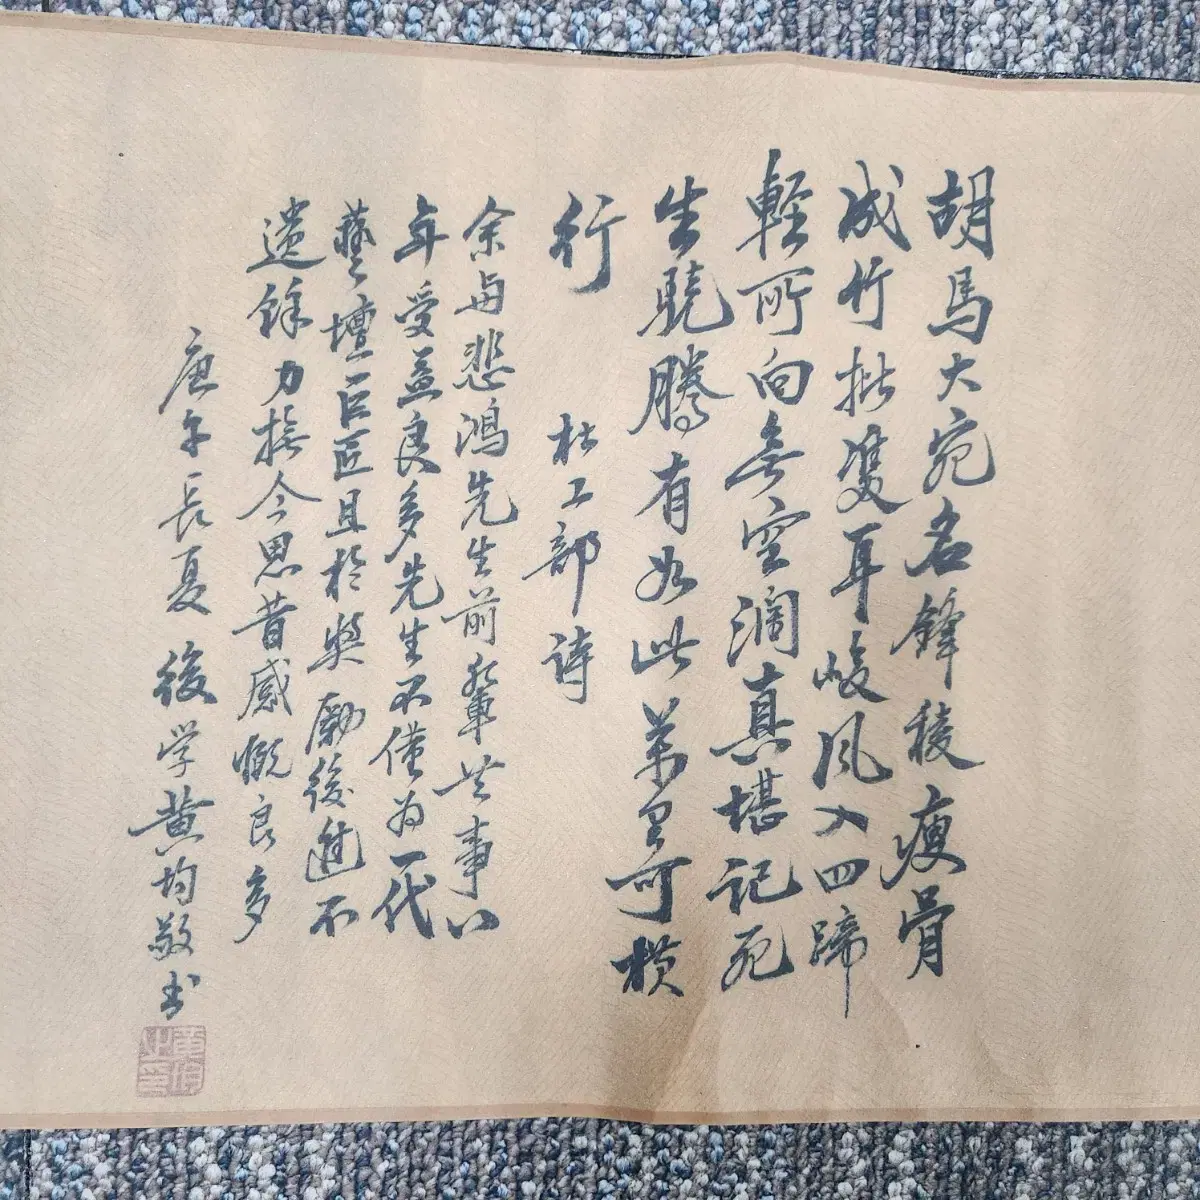 胡馬大宛名鋒稜瘦骨
成竹批雙耳峻風入四蹄
輕所向無空濶真堪記死
生驍騰有如此萬里可橫
行 杜工部詩
余与悲鴻先生前輩共事八
年受益良多先生不僅为一代
藝壇巨匠且於奬勵後進不
遺餘力撫今思昔感慨良多
庚午長夏 後学黄均敬书
黄均之印